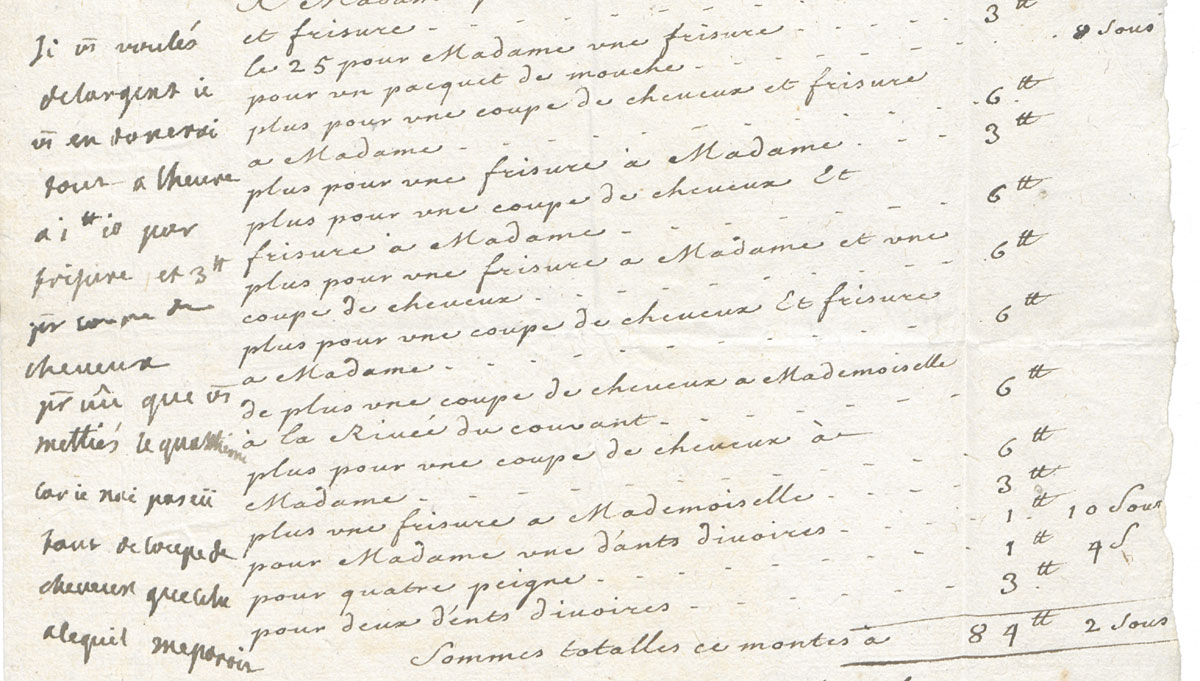 a Madame
et frisure - 3 tt
le 25 pour Madame vne frisure - 8 Sous
pour vn pacquet de mouche
plus pour vne coupe de cheveux et frisure
a Madame - 6 tt
plus pour vne frisure à Madame - 3 tt
plus pour vne coupe de cheveux Et
frisure à Madame - 6 tt
plus pour vne frisure a Madame et vne
coupe de cheveux - 6 tt
plus pour vne coupe de cheveux Et frisure
a Madame - 6 tt
de plus vne coupe de cheveux a Mademoiselle
à la Rivée du couvant - 6 tt
plus pour vne coupe de cheveux à
Madame - 6 tt
plus vne frisure a Mademoiselle - 3 tt
pour Madame vne d'ants divoires - 1 tt 10 Sous
pour quatre peigne - 1 tt 4 S
pour deux d'ents divoires - 3 tt
Sommes totalles ce montes à 84 tt 2 Sous
Si vs voulés
delargent ie
vs en donerai
tout a lheure
a 1 tt 10 par
frisure et 3 tt
pr coupe de
cheveux
pr que vs
mettiés le quatrieme
car ie nai pas eü
tant de coupe de
cheveux que cela
a le quil me paroit